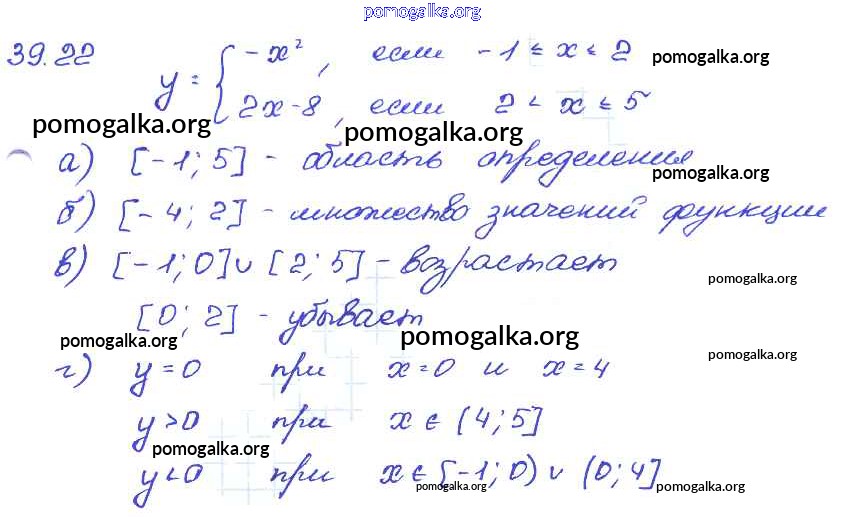 pomogalka.org
39.22
y = { -x², если -1 ≤ x ≤ 2 pomogalka.org
2x-8, если 2 < x ≤ 5
pomogalka.org pomogalka.org
а) [-1; 5] - область определения
pomogalka.org
б) [-4; 2] - множество значений функции
в) [-1; 0] ∪ [2; 5] - возрастает
pomogalka.org
[0; 2] - убывает
pomogalka.org pomogalka.org
pomogalka.org
г) y = 0 при x = 0 и x = 4
y > 0 при x ∈ (4; 5]
pomogalka.org
y < 0 при x ∈ [-1; 0) ∪ (0; 4]
pomogalka.org pomogalka.org